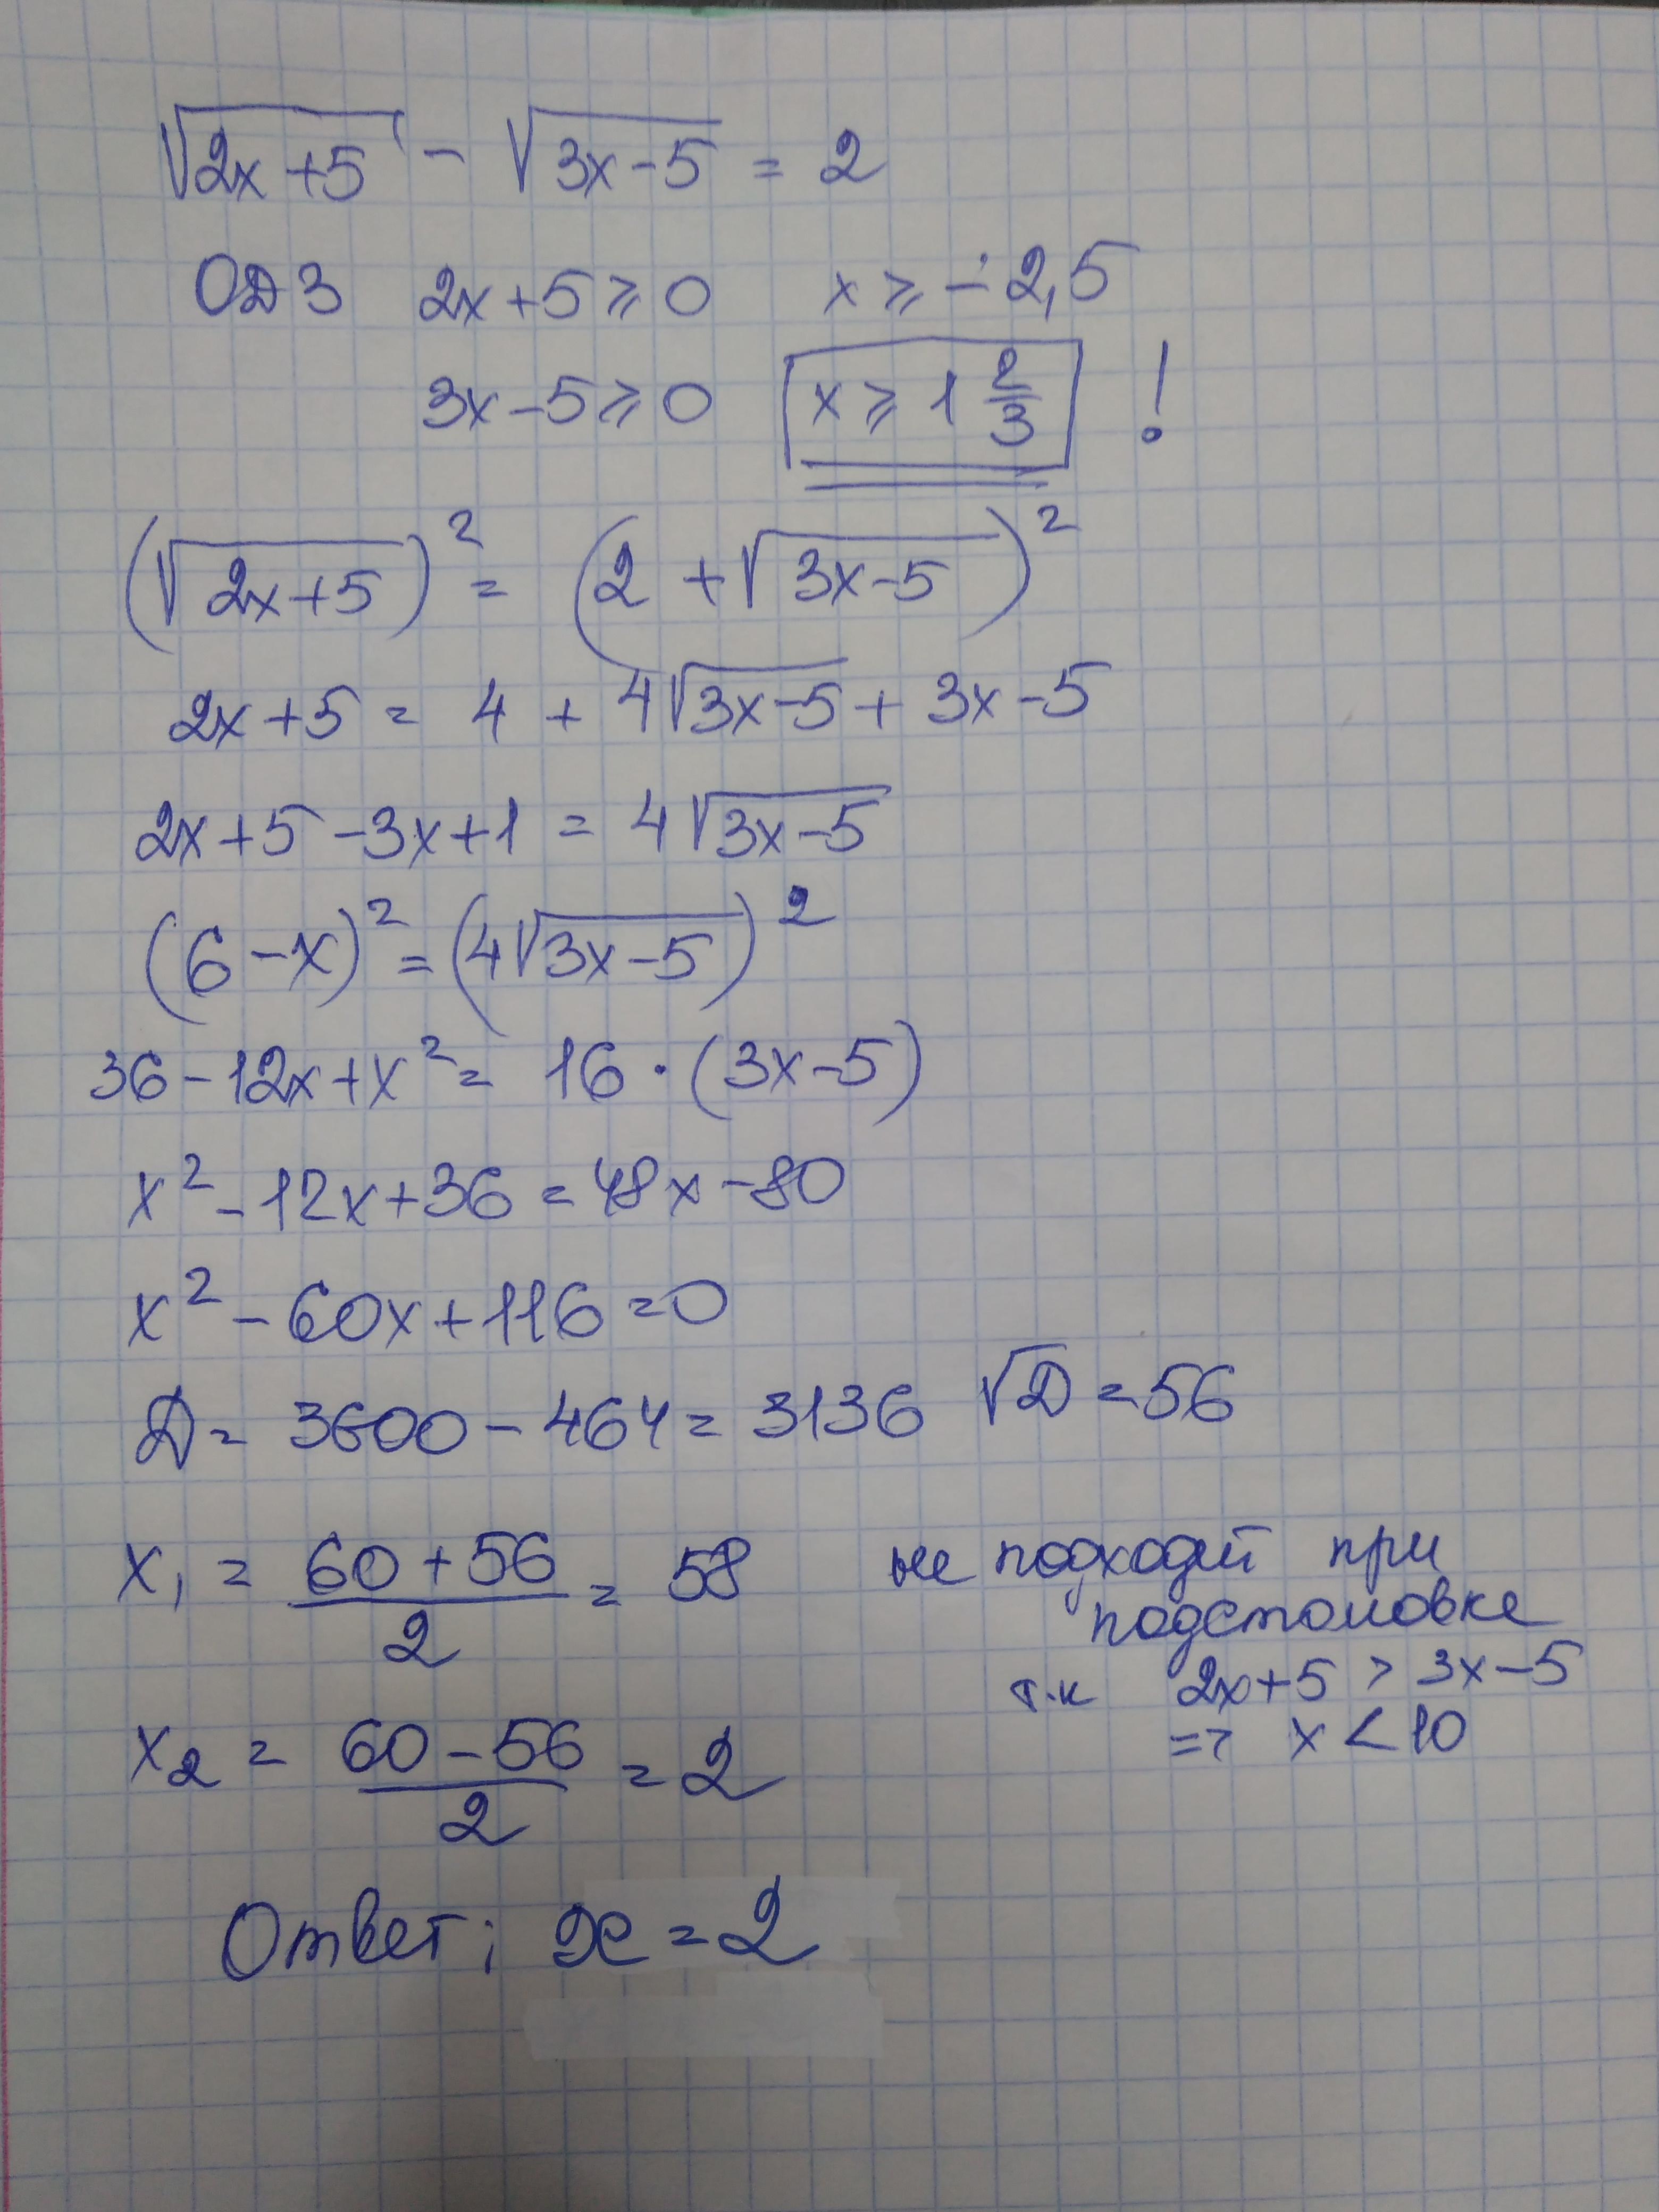 √2x+5 - √3x-5 = 2
ОДЗ 2x+5⩾0 x⩾-2,5
3x-5⩾0 x⩾1 2/3 !
(√2x+5)² = (2+√3x-5)²
2x+5 = 4 + 4√3x-5 + 3x-5
2x+5-3x+1 = 4√3x-5
(6-x)² = (4√3x-5)²
36-12x+x² = 16·(3x-5)
x²-12x+36=48x-80
x²-60x+116=0
D = 3600-464=3136 √D=56
x₁ = (60+56)/2 = 58 не подходит при
подстановке
т.к 2x+5 > 3x-5
=> x < 10
x₂ = (60-56)/2 = 2
Ответ: x=2